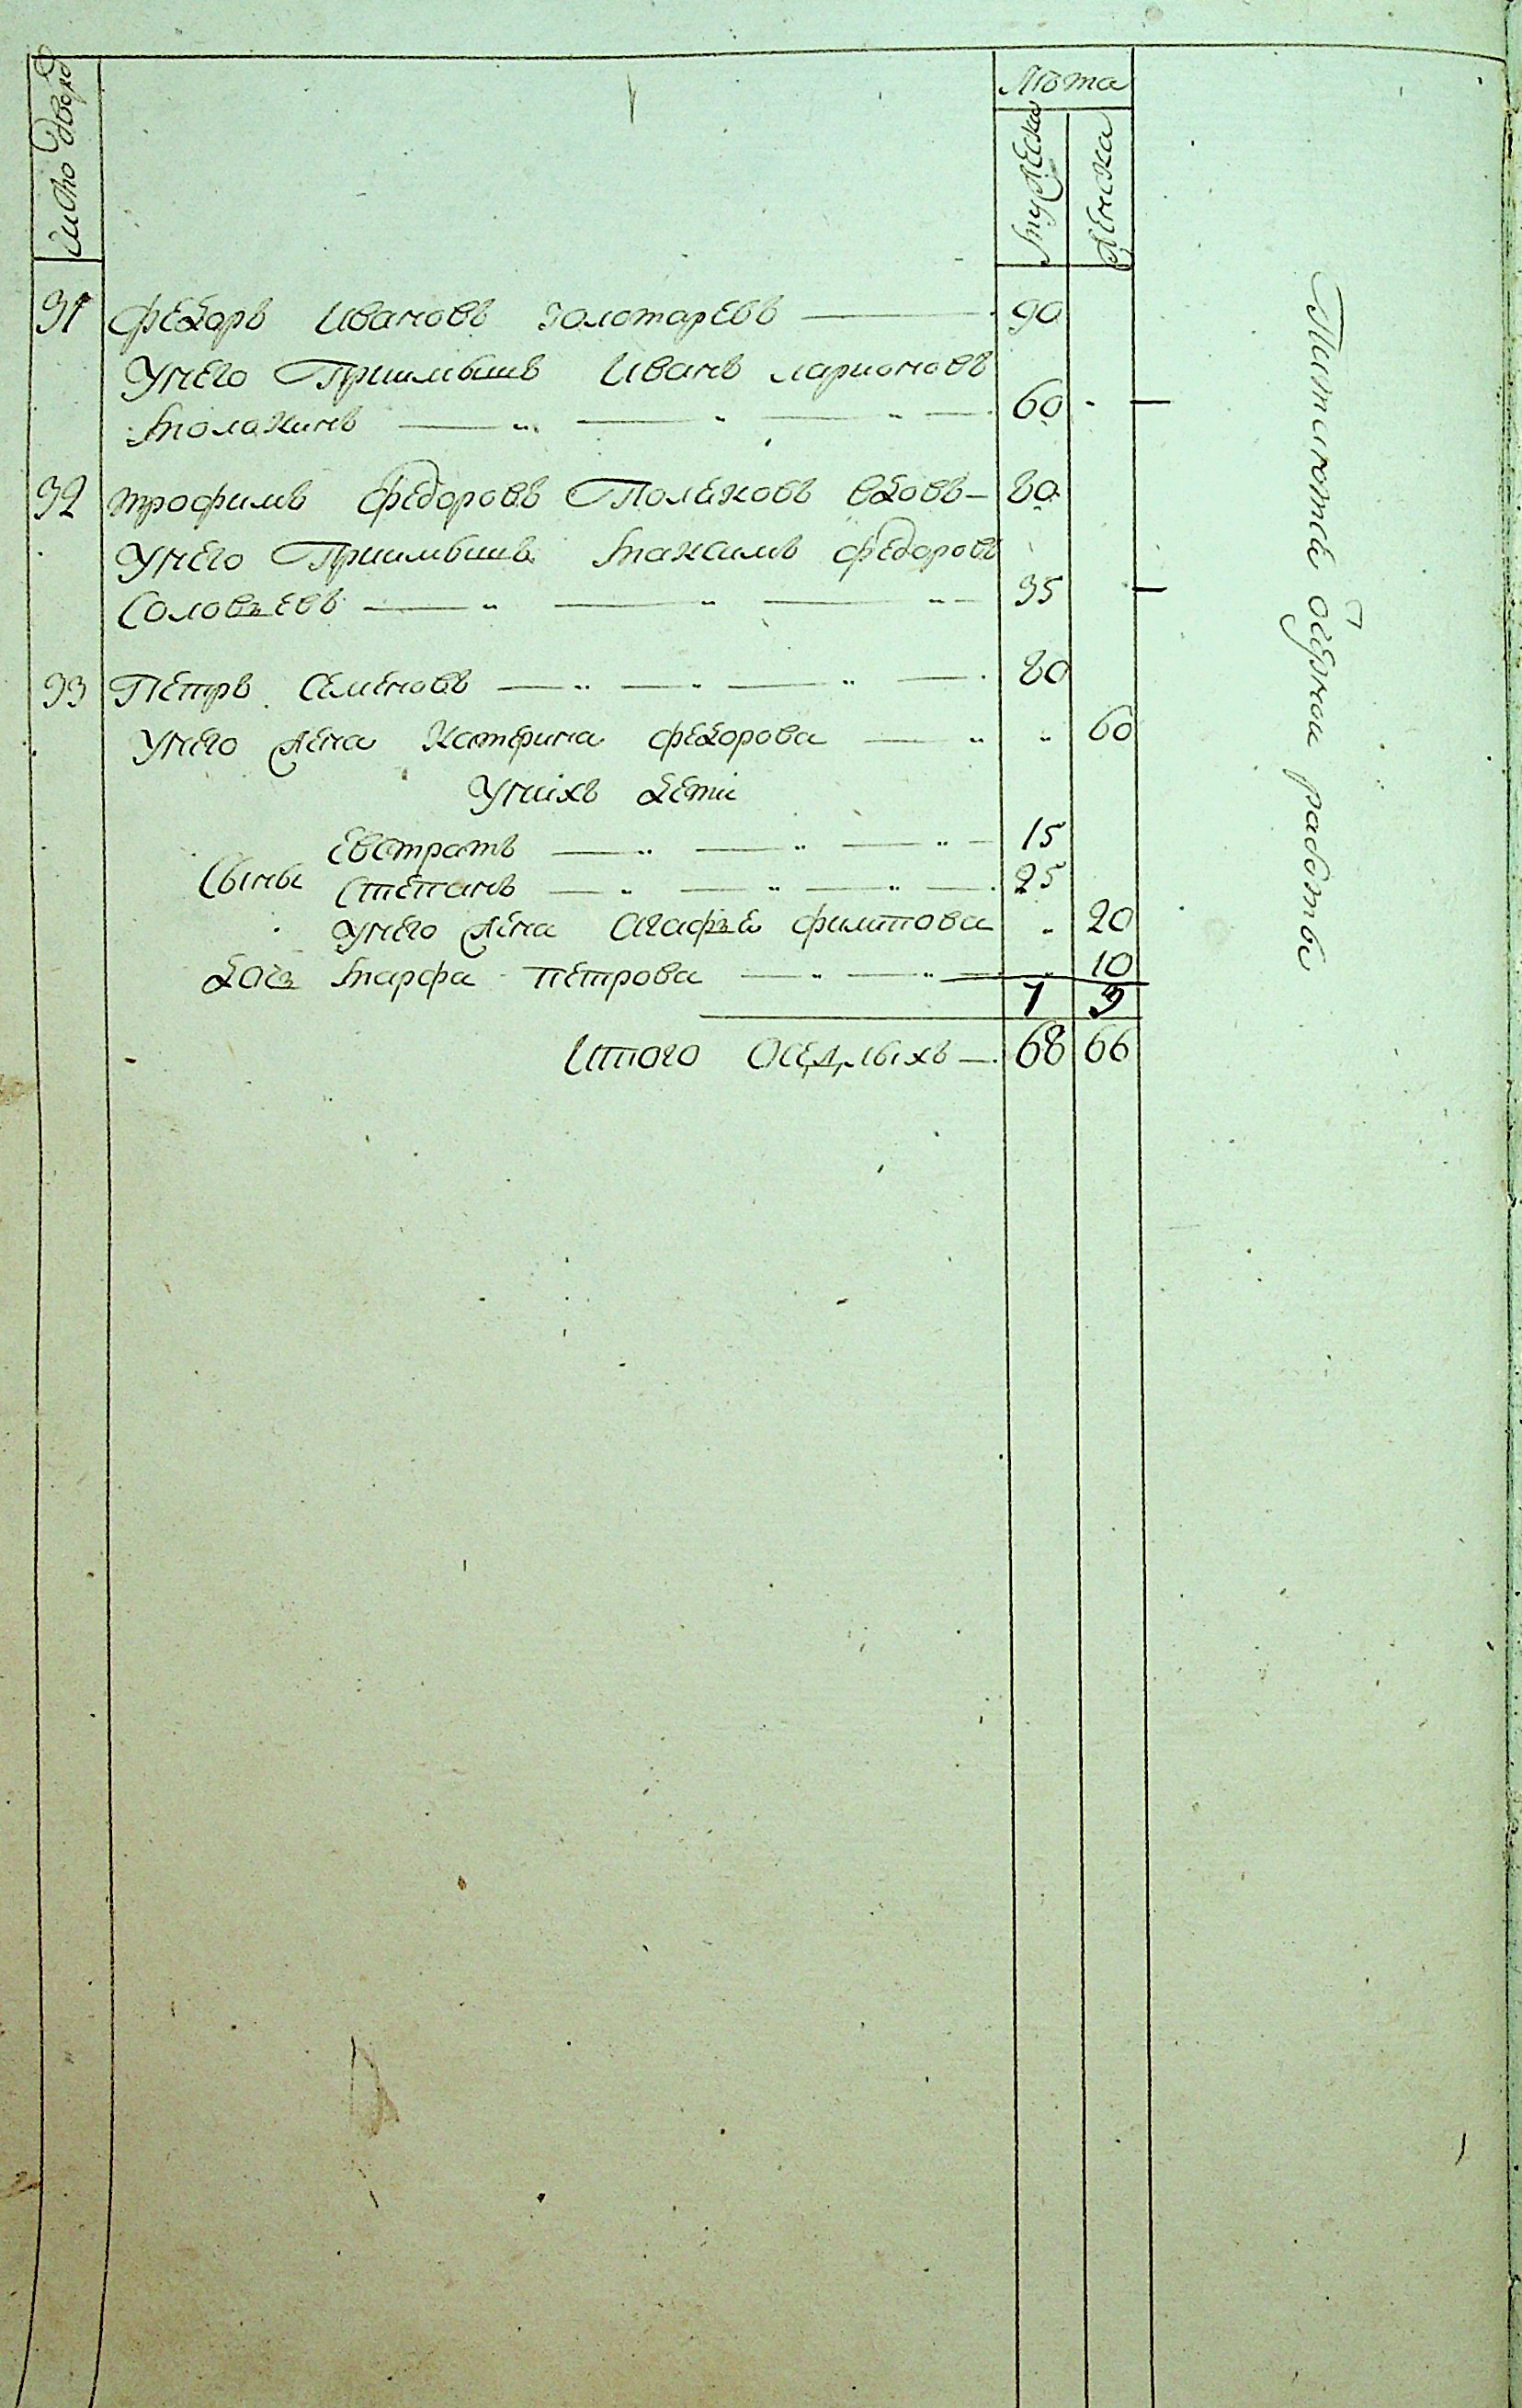 Число дворовъ
Лѣта
Мужеска
Женска
31 Федоръ Ивановъ Золотаревъ 90
Унего Приимышъ Иванъ Ларионовъ
Малахинъ 60
32 Трофимъ Федоровъ Поляковъ вдовъ 80
Унего Приимышъ Максимъ Федоровъ
Соловьевъ 35
33 Петръ Семеновъ 80
Унего жена Катерина Федорова 60
Унихъ дети
Евстратъ 15
Сыны Степанъ 25
Унего жена Агафья Филипова 20
Дочь Марфа Петрова 10
7 3
Итого Оседлыхъ 68 66
работы